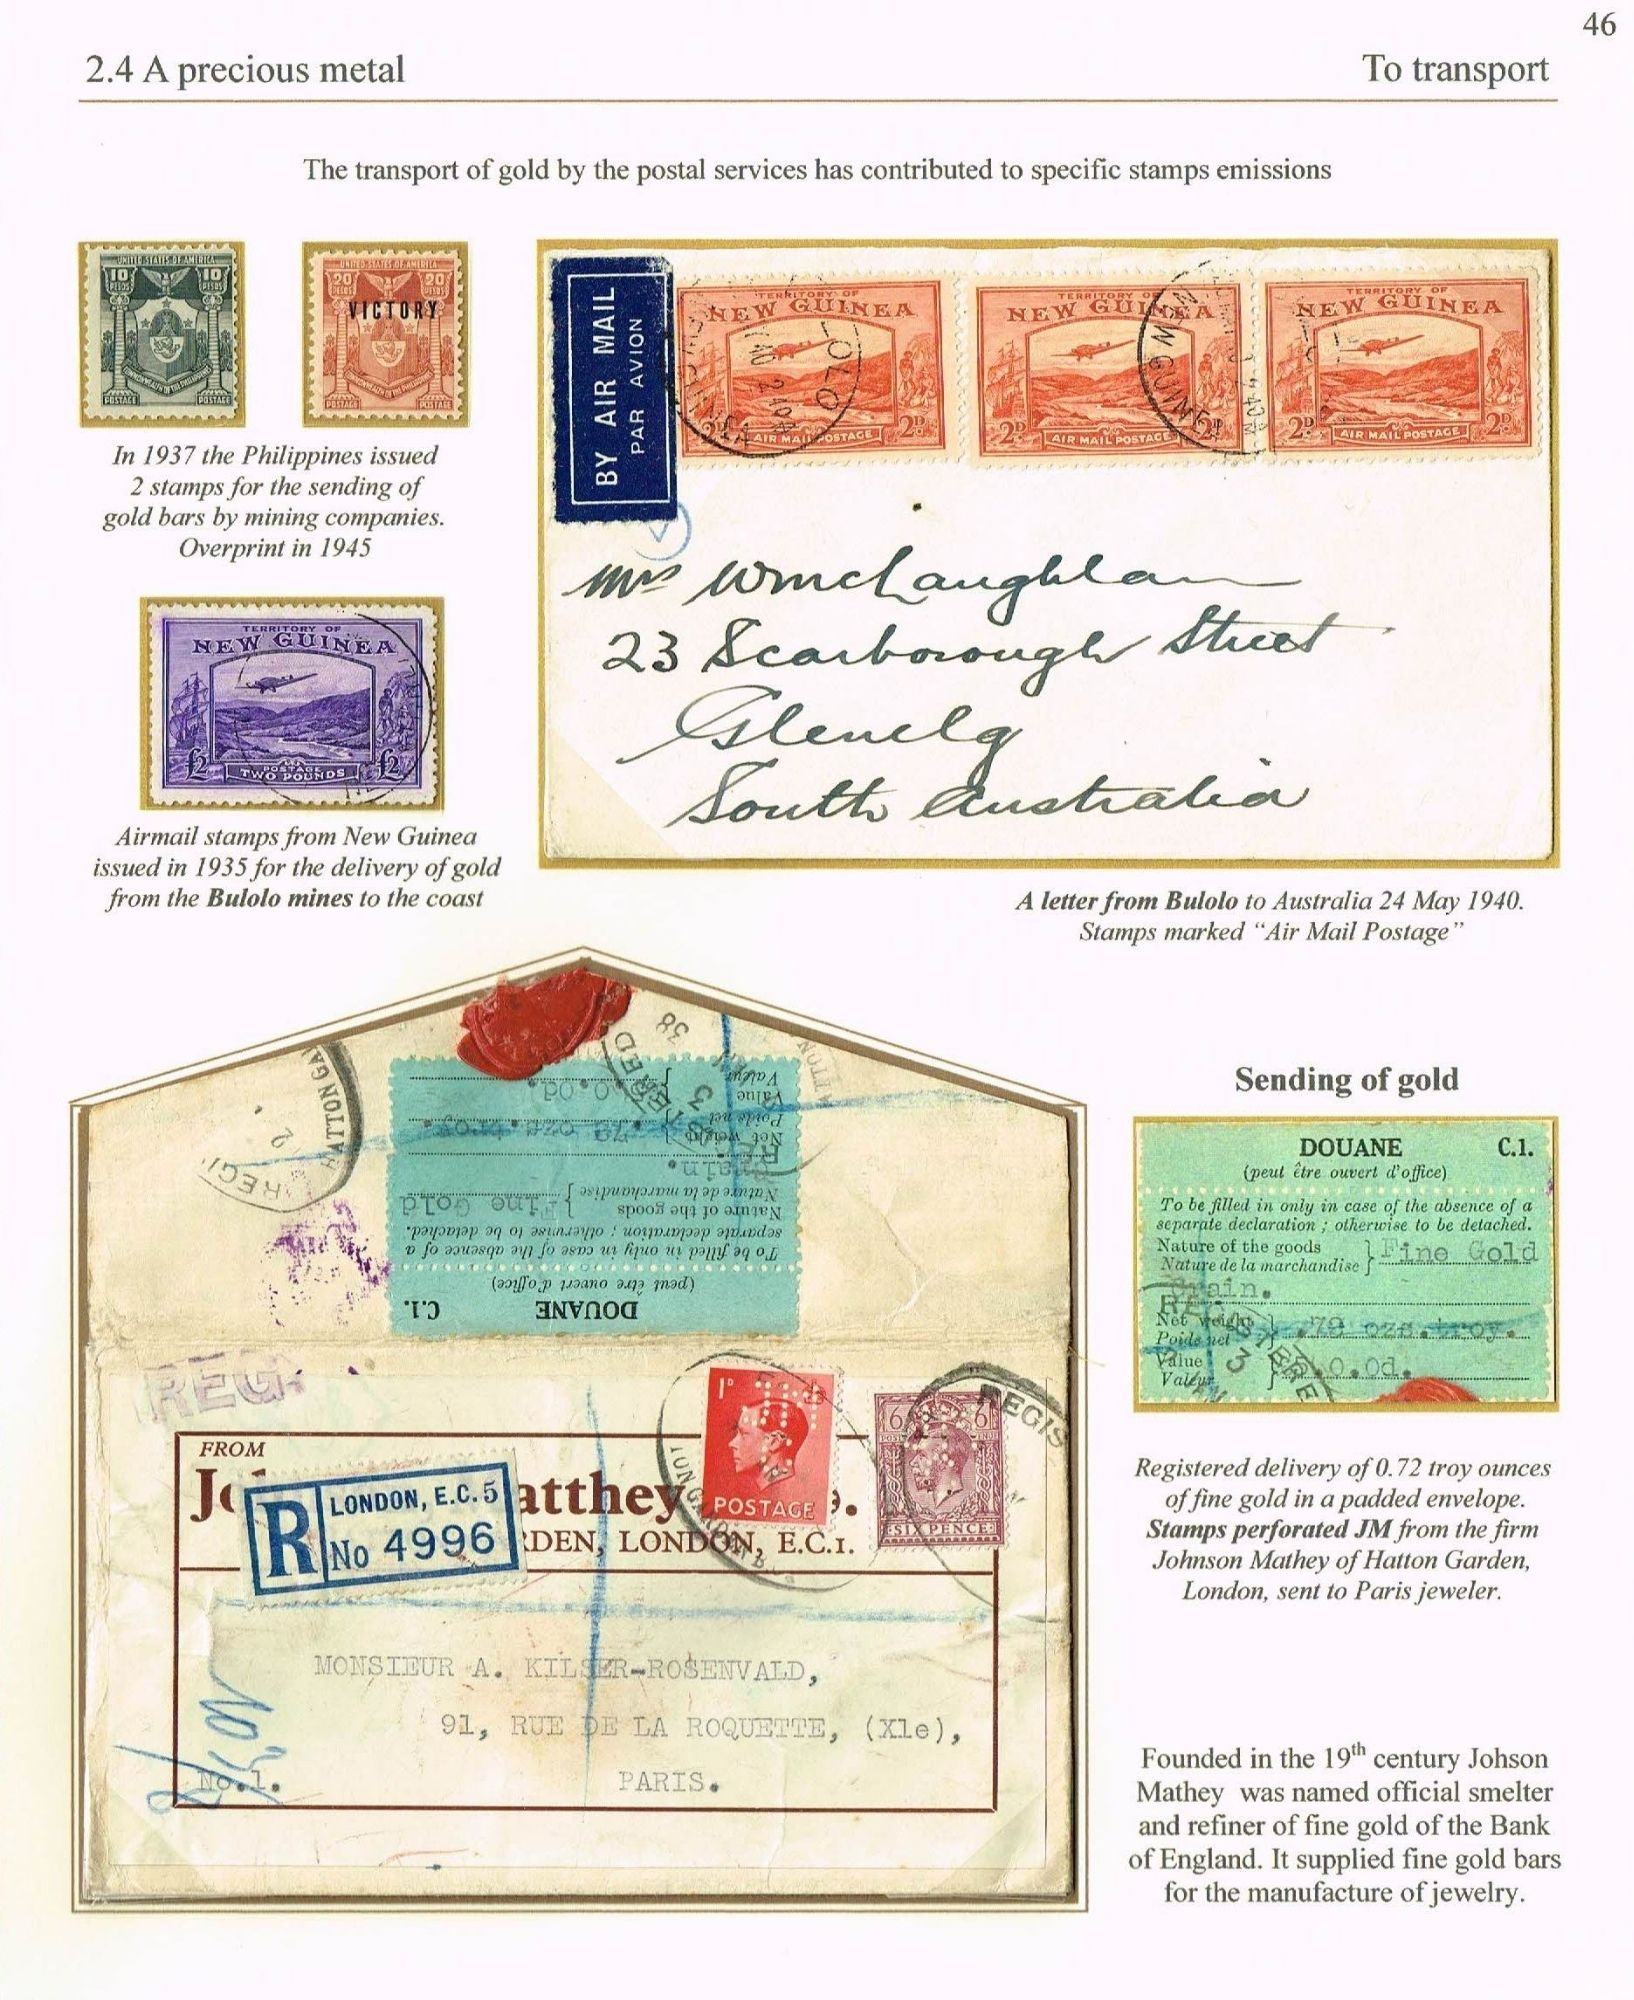 46
2.4 A precious metal
To transport
The transport of gold by the postal services has contributed to specific stamps emissions
UNITED STATES OF AMERICA
10 10
PESOS PESOS
COMMONWEALTH OF THE PHILIPPINES
POSTAGE POSTAGE
UNITED STATES OF AMERICA
20 20
PESOS PESOS
VICTORY
COMMONWEALTH OF THE PHILIPPINES
POSTAGE POSTAGE
In 1937 the Philippines issued
2 stamps for the sending of
gold bars by mining companies.
Overprint in 1945
TERRITORY OF
NEW GUINEA
£2 £2
POSTAGE
TWO POUNDS
Airmail stamps from New Guinea
issued in 1935 for the delivery of gold
from the Bulolo mines to the coast
BY AIR MAIL
PAR AVION
TERRITORY OF
NEW GUINEA
2D 2D
AIR MAIL POSTAGE
TERRITORY OF
NEW GUINEA
2D 2D
AIR MAIL POSTAGE
NEW GUINEA
TERRITORY OF
NEW GUINEA
2D 2D
AIR MAIL POSTAGE
Mrs W McLaughlan
23 Scarborough Street
Glenelg
South Australia
A letter from Bulolo to Australia 24 May 1940.
Stamps marked “Air Mail Postage”
DOUANE C.1.
(peut être ouvert d'office)
To be filled in only in case of the absence of a
separate declaration ; otherwise to be detached.
Nature of the goods
Nature de la marchandise } Fine Gold
Grain.
Net weight
Poids net } .72 ozs.troy.
Value
Valeur
HATTON GA
REG.
FROM
atthey
RDEN, LONDON, E.C.1.
R
LONDON, E.C. 5
No 4996
1D
POSTAGE
6 6
SIXPENCE
REGIS
MONSIEUR A. KILSER-ROSENVALD,
91, RUE DE LA ROQUETTE, (XIe),
No.1.
PARIS.
Sending of gold
DOUANE C.1.
(peut être ouvert d'office)
To be filled in only in case of the absence of a
separate declaration ; otherwise to be detached.
Nature of the goods
Nature de la marchandise } Fine Gold
Grain.
Net weight
Poids net } .72 ozs.troy.
Value
Valeur
Registered delivery of 0.72 troy ounces
of fine gold in a padded envelope.
Stamps perforated JM from the firm
Johnson Mathey of Hatton Garden,
London, sent to Paris jeweler.
Founded in the 19th century Johson
Mathey was named official smelter
and refiner of fine gold of the Bank
of England. It supplied fine gold bars
for the manufacture of jewelry.